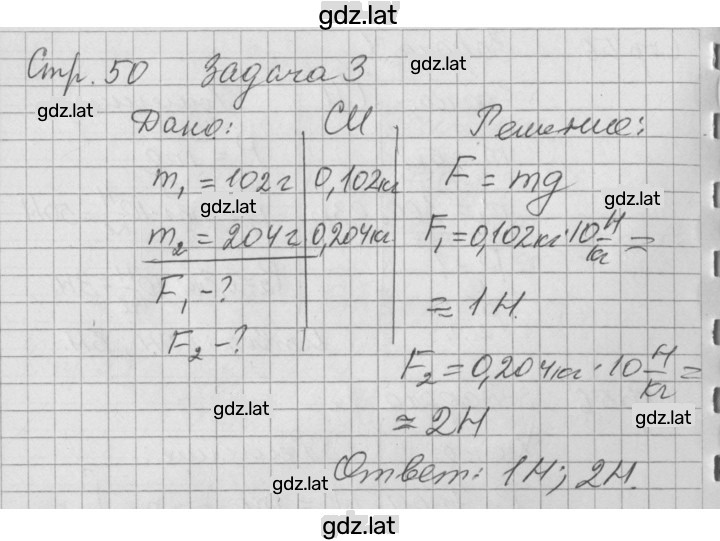 gdz.lat
Стр. 50 Задача 3
gdz.lat
gdz.lat
Дано: СИ Решение:
m₁ = 102 г 0,102 кг F = mg
gdz.lat
gdz.lat
m₂ = 204 г 0,204 кг F₁ = 0,102 кг · 10 Н/кг =
F₁ - ? ≈ 1 Н.
F₂ - ? F₂ = 0,204 кг · 10 Н/кг =
gdz.lat
gdz.lat
≈ 2 Н
gdz.lat
Ответ: 1 Н; 2 Н.
gdz.lat